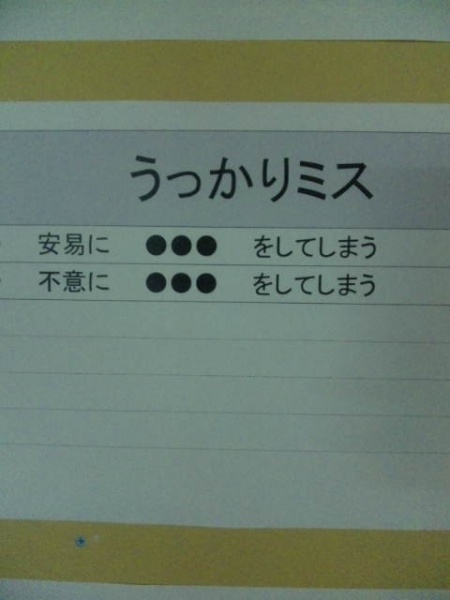 うっかりミス
安易に ●●● をしてしまう
不意に ●●● をしてしまう